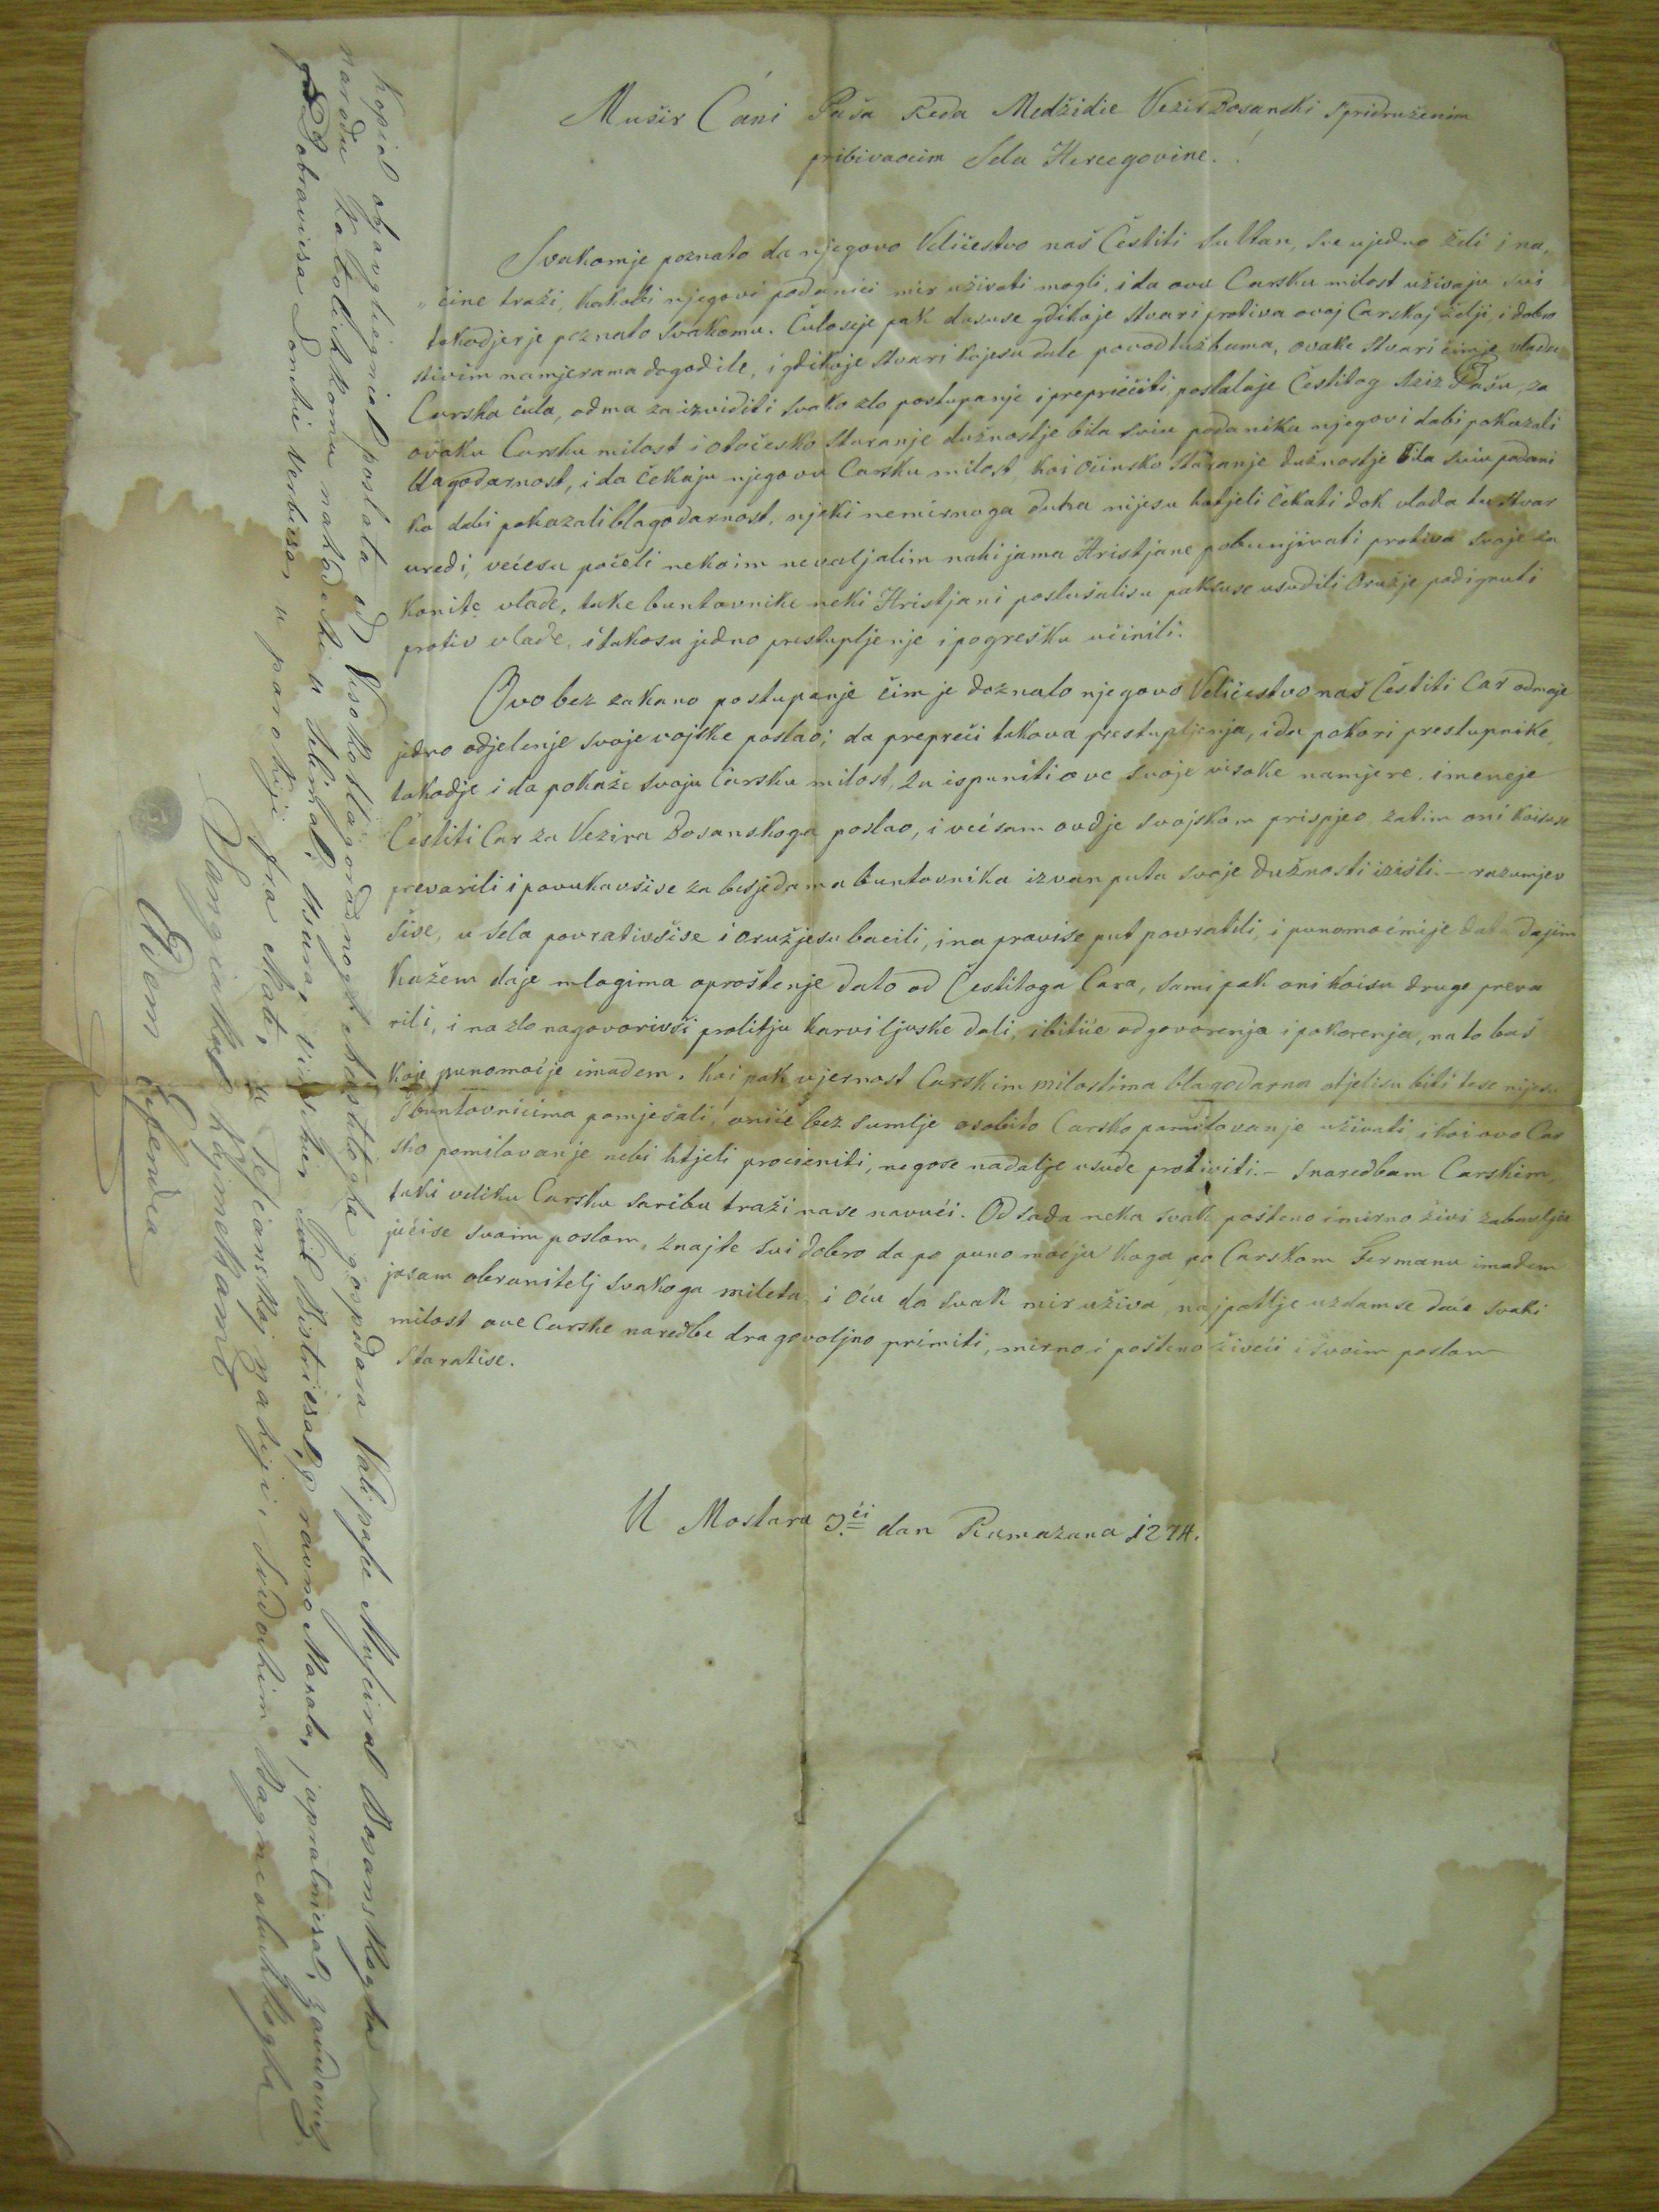 Mušir Ćani Paša Reda Medžidie Vezir Bosanski Spridruženim
pribivaocim Sela Hercegovine.
Svakomje poznato da njegovo Veličestvo naš Čestiti Sultan, sve ujedno želi i na,
„čine traži, kakobi njegovi podanici mir uživati mogli, i da ovu Carsku milost uživaju svi
takodjerje poznato svakomu. Čuloseje pak dasuse gdikoje stvari protiva ovoj Carskoj želji, i dobro
stivim namjerama dogodile, i gdikoje stvari kojesu dale povod tužbama, ovake stvari čimje vlada
Carska čula, odma za izviditi svako zlo postupanje i prepričiti, poslalaje Čestitog Aziz Pašu, za
ovaku Carsku milost i otočesko staranje dužnostje bila sviu podanika njegovi dabi pokazali
blagodarnost, i da čekaju njegovu Carsku milost, koi očinsko staranje dužnostje bila sviu podani
ka dabi pokazali blagodarnost, njeki nemirnoga duha nijesu hotjeli čekati dok vlada tu stvar
uredi, većesu počeli nekoim nevaljalim nahijama Hristjane pobunjivati protiva svoje za
konite vlade, take buntovnike neki Hristjani poslušalisu paksuse usudili Oružje podignuti
protiv vlade, i takosu jedno prestupljenje i pogrešku učinili.
Ovo bez zakano postupanje čim je doznalo njegovo Veličestvo naš Čestiti Car odmaje
jedno odjelenje svoje vojske poslao; da prepreči takova prestupljenja, i da pokori prestupnike,
takodje i da pokaže svoju Carsku milost, za ispuniti ove svoje visoke namjere, imeneje
Čestiti Car za Vezira Bosanskoga poslao, i većsam ovdje svojskom prispjeo, zatim oni koisuse
prevarili i povukavšise za besjedama buntovnika izvan puta svoje dužnosti izišli. – razumjev
šise, u sela povrativšise i oružjesu bacili, i na pravise put povratili, i punomoćmije data dajim
kažem daje mlogima oproštenje dato od Čestitoga Cara, sami pak oni koisu druge preva
rili, i na zlo nagovorivši prolitju karvi ljuske dali, i bitiće odgovorenja i pokorenja, na to baš
koje punomoćje imadem. Koi pak vjernost Carskim milostima blagodarna otjelisu biti tese nijesu
s buntovnicima pomješali, oniće bez sumlje osobito Carsko pomilovanje uživati, i koi ovo Car
sko pomilovanje nebi htjeli procieniti, negose nadalje usude protiviti. – s naredbam Carskim,
taki veliku Carsku saribu traži nase navući. Od sada neka svak pošteno i mirno živi zabavlja
jućise svoim poslom, znajte svi dobro da po punomoćju koga po Carskom Fermanu imadem
jasam obranitelj svakoga mileta, i oću da svak mir uživa, najpotlje uzdamse daće svaki
milost ove Carske naredbe dragovoljno primiti, mirno i pošteno živeći i svoim poslom
staratise.
U Mostaru 3.ći dan Ramazana 1274.
Kopia objavghegnia poslata od visoko blagorodnogh i gospodara Vali paše Mušira Bosanskogha
narodu Katolickomu nahodechi u
Dobravicsa Donchi Verbicsa, u parokiji fra
Kajmekam
Edem Efendia